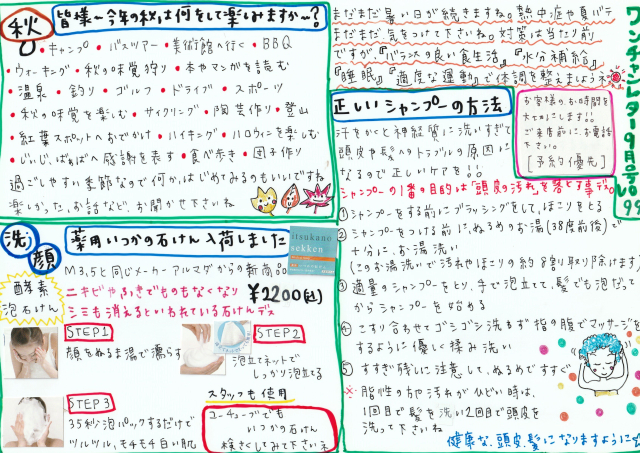 秋
皆様～今年の秋は何をして楽しみますか～?
・キャンプ ・バスツアー ・美術館へ行く ・BBQ
・ウォーキング ・秋の味覚狩り ・本やマンガを読む
・温泉 ・釣り ・ゴルフ ・ドライブ ・スポーツ
・秋の味覚を楽しむ ・サイクリング ・陶芸作り ・登山
・紅葉スポットへおでかけ ・ハイキング ・ハロウィンを楽しむ
・じぃじ、ばぁばへ感謝を表す ・食べ歩き ・団子作り
過ごしやすい季節なので何かはじめてみるのもいいですね
楽しかった、お話など、お聞かせ下さいね
洗顔
薬用いつかの石けん入荷しました
itsukano
sekken
M3.5と同じメーカーアルマダからの新商品
酵素
泡石けん
ニキビやふきでものもなくなり
シミも消えるといわれている石けんデス
¥2200(込)
STEP1
顔をぬるま湯で濡らす
STEP2
泡立てネットで
しっかり泡立てる
STEP3
35秒泡パックするだけで
ツルツル、モチモチ白い肌
スタッフも使用
ユーチューブでも
いつかの石けん
検さくしてみて下さいネ
ワンチャンレター9月号No99
まだまだ暑い日が続きますね。熱中症や夏バテ
まだまだ気をつけて下さいね。対策は当たり前
ですが『バランスの良い食生活』『水分補給』
『睡眠』『適度な運動』で体調を整えましょうネ
お客様のお時間を
大切にします!!
ご来店前にお電話
下さい。
[予約優先]
正しいシャンプーの方法
汗をかくと神経質に洗いすぎて
頭皮や髪へのトラブルの原因に
なるので正しいケアを!!
シャンプーの1番の目的は「頭皮の汚れ」を落とす事デス。
①シャンプーをする前にブラッシングをして、ほこりをとる
②シャンプーをつける前に、ぬるめのお湯(38度前後)で
十分に、お湯洗い
(このお湯洗いで汚れやほこりの約8割取り除けます)
③適量のシャンプーをとり、手で泡立てて、髪でも泡だって
からシャンプーを始める
④こすり合わせてゴシゴシ洗わず指の腹でマッサージを
するように優しく揉み洗い
⑤すすぎ残しに注意して、ぬるめですすぐ
※脂性の方や汚れがひどい時は、
1回目で髪を洗い2回目で頭皮を
洗って下さいね
健康な、頭皮、髪になりますように☆